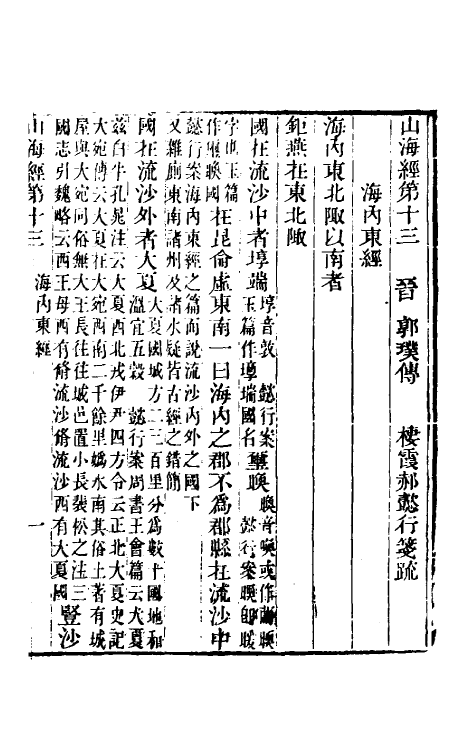 山海經第十三　晉　郭璞傳　棲霞郝懿行箋疏
海內東經
海內東北陬以南者
鉅燕在東北陬
國在流沙中者埻端埻音敦　懿行案玉篇作㻔瑞國名璽㬇㬇音喚或作繭㬇　懿行案㬇即暖
字也玉篇作璽㬇國在昆侖虛東南一曰海內之郡不為郡縣在流沙中
懿行案海內東經之篇而說流沙內外之國下
又雜廁東南諸州及諸水疑皆古經之錯簡
國在流沙外者大夏大夏國城方二三百里分為數十國地和溫宜五穀　懿行案周書王會篇云大夏
茲白牛孔晁注云大夏西北戎伊尹四方令云正北大夏史記
大宛傳云大夏在大宛西南二千餘里媯水南其俗土著有城
屋與大宛同俗無大王長往往城邑置小長裴松之注三
國志引魏略云西王母西有脩流沙脩流沙西有大夏國豎沙
山海經第十三　海內東經　一